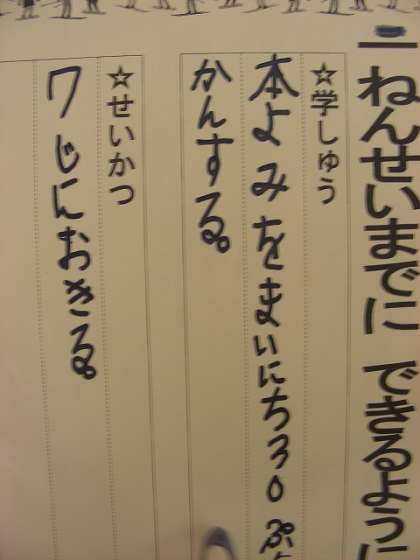 二ねんせいまでに できるように
☆学しゅう
本よみをまいにち30ぷ
かんする。
☆せいかつ
7じにおきる。